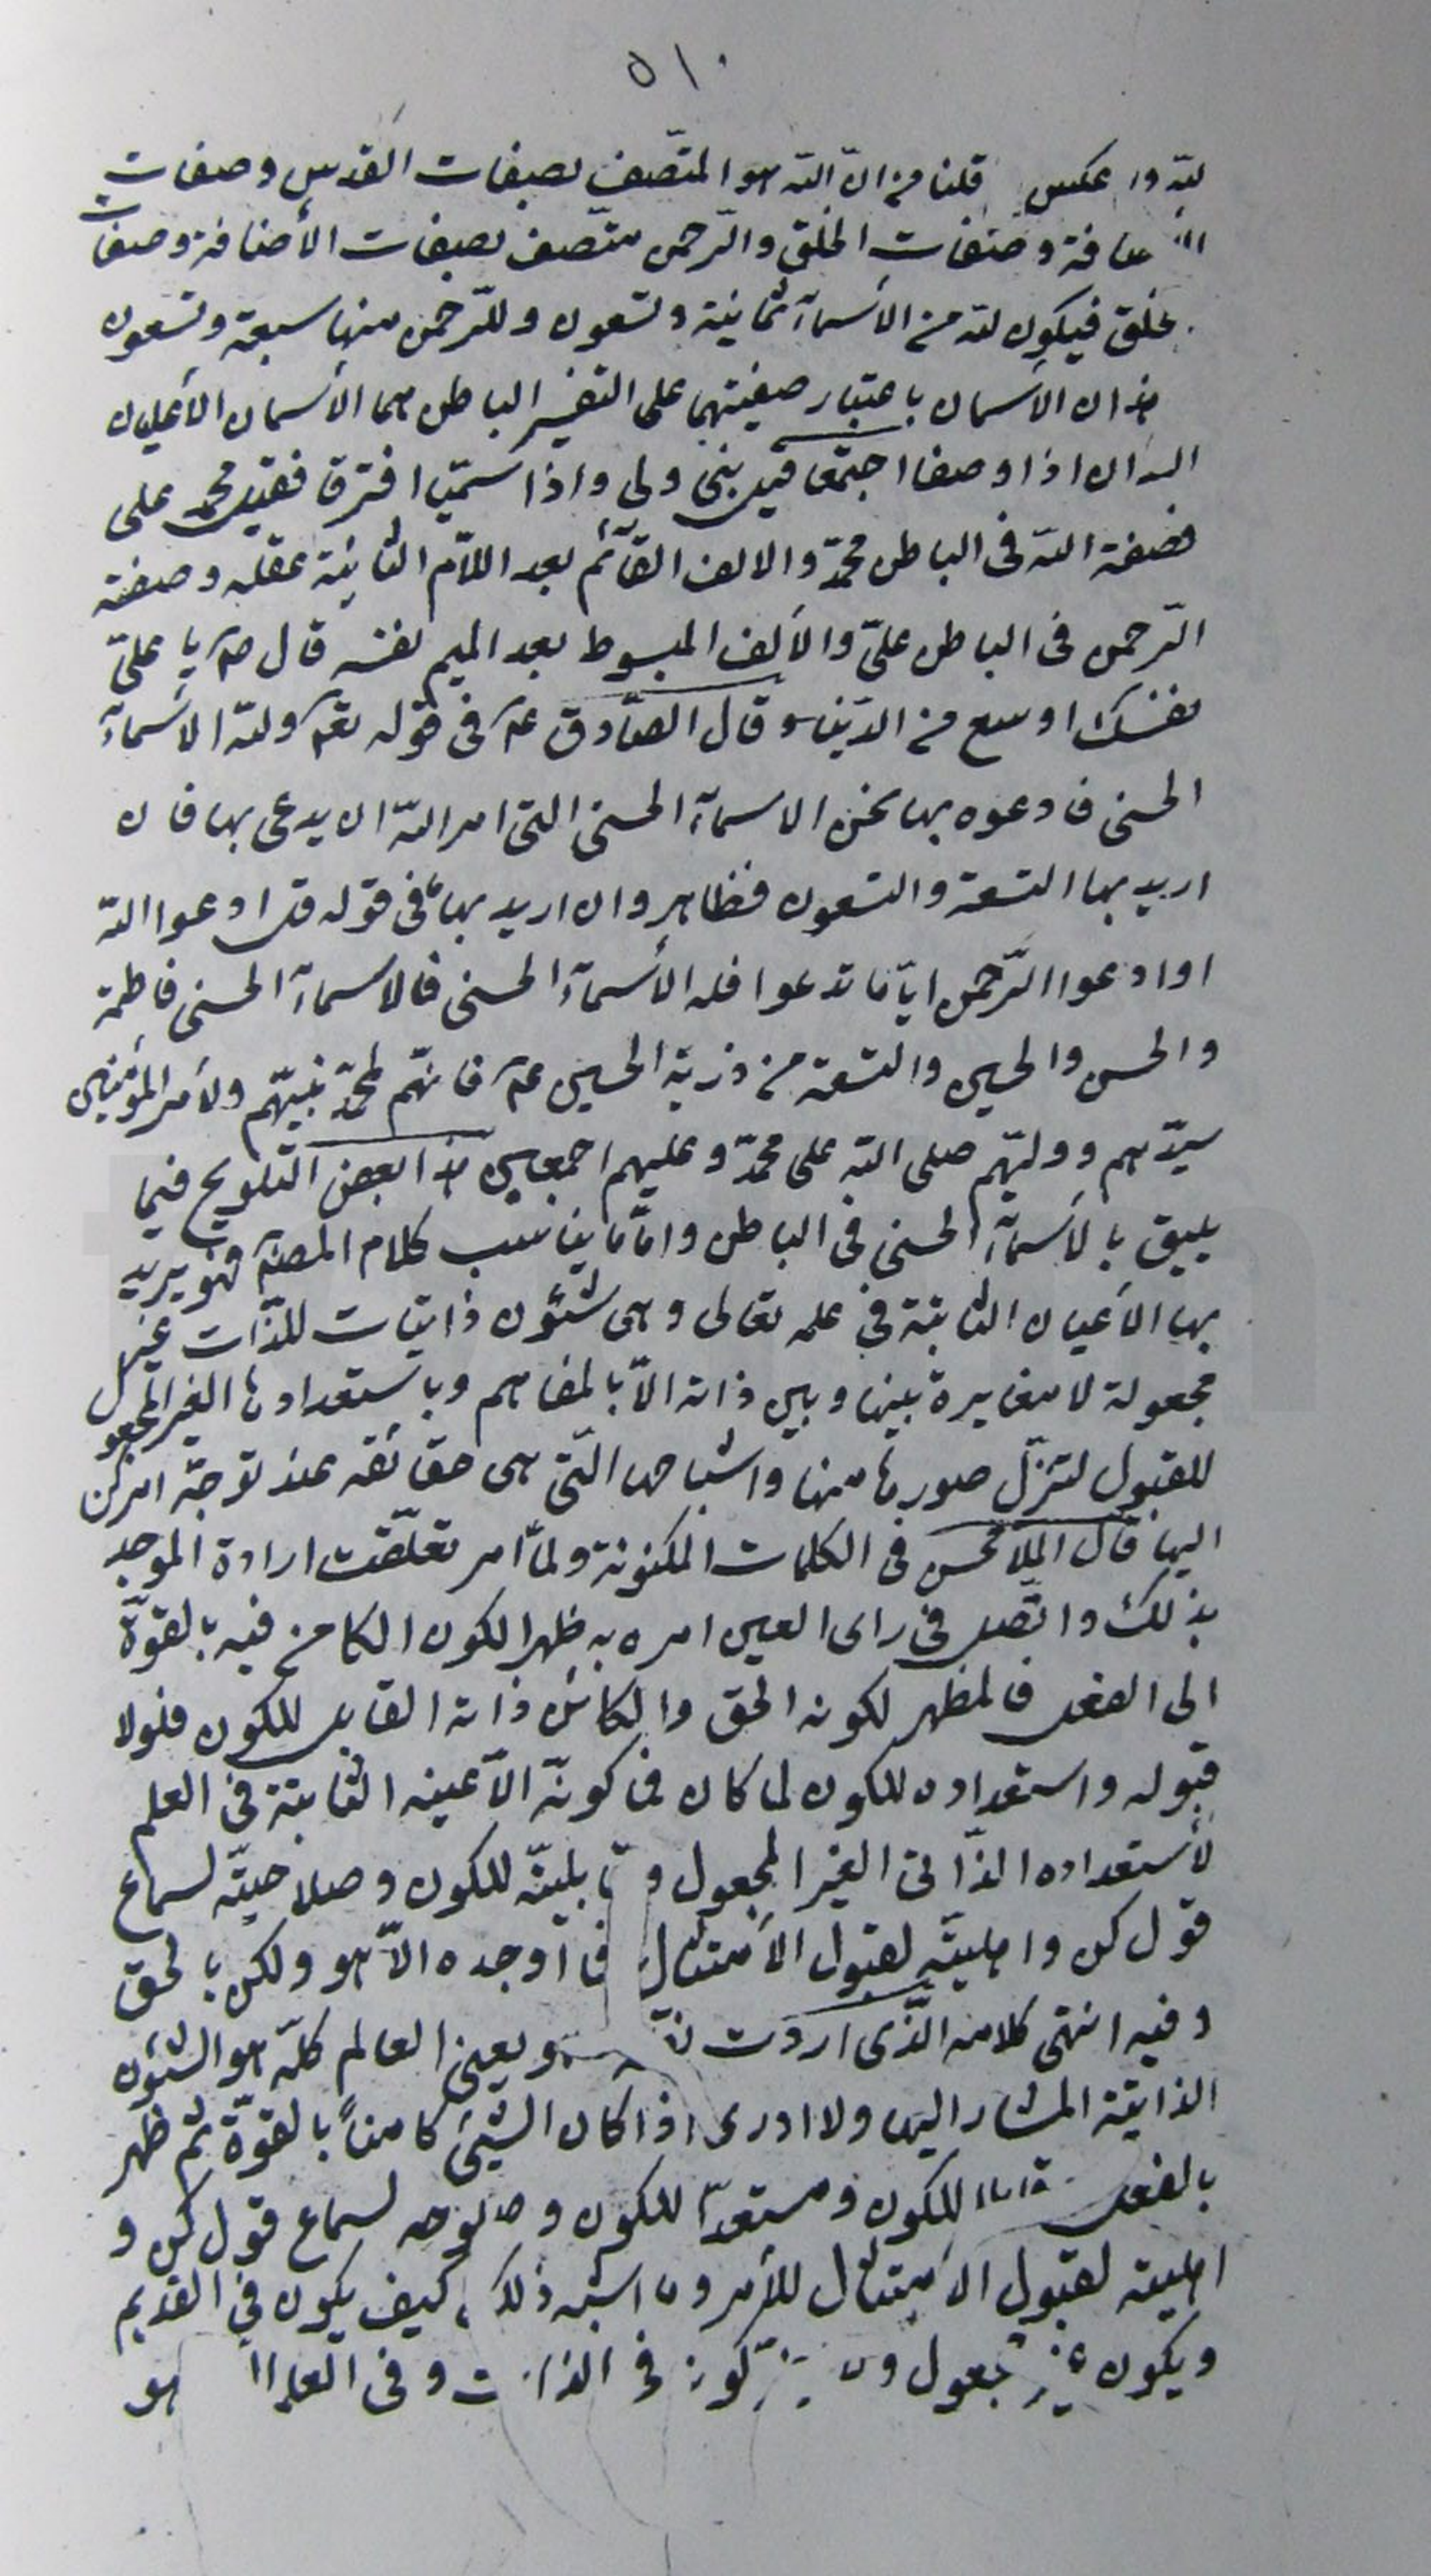 ٥١٠
لله ولا عكس قلنا من ان الله هو المتّصف بصفات القدس وصفات
الاضافة وصفات الخلق والرّحمن متّصف بصفات الأضافة وصفات
الخلق فيكون لله من الأسمآء ثمانية وتسعون وللرّحمن منها سبعة وتسعون
هذان الأسمان باعتبار صفيتهما على التفسير الباطن هما الأسمان الأعليان
اللذان اذا وصفا اجتمعا فقيل نبى ولى واذا سمّيا افترقا فقيل محمد على
فصفة الله فى الباطن محمّد والالف القآئم بعد اللّام الثانية عقله وصفة
الرّحمن فى الباطن علىّ والألف المبسوط بعد الميم نفسه قال صم يا علىّ
نفسك اوسع من الدّنيا وقال الصّادق عم فى قوله تعم ولله الاسمآء
الحسنى فادعوه بها نحن الاسمآء الحسنى التى امر الله ان يدعى بها فان
اريد بها التسعة والتسعون فظاهر وان اريد بها ما فى قوله قل ادعوا الله
او ادعوا الرّحمن ايّاما تدعوا فله الأسمآء الحسنى فالاسمآء الحسنى فاطمة
والحسن والحسين والتسعة من ذرية الحسين عم فانهّم لمحمّد نبيّهم ولأمير المؤمنين
سيّدهم ووليّهم صلى الله على محمّد وعليهم اجمعين هذا بعض التّلويح فيما
يليق بالأسمآء الحسنى فى الباطن وامّا ما يناسب كلام المصنّف فهو يريد
بها الأعيان الثابتة فى علمه تعالى وهى شئون ذاتيات للذّات غير
مجعولة لا مغايرة بينها وبين ذاته الّا بالمفاهيم وباستعدادها الغير المجعول
للقبول لتنزّل صورها منها واشباحها الّتى هى حقائقه عند توجّه امر كن
اليها قال الملّا محسن فى الكلمات المكنونة ولمّا امر تعلّقت ارادة الموجد
بذلك واتّصل فى راى العين امره به ظهر الكون الكامن فيه بالقوّة
الى الفعل فالمظهر لكونه الحق والكائن ذاته القابل للكون فلولا
قبوله واستعداده للكون لما كان فما كونّه الّا عينه الثابتة فى العلم
لأستعداده الذّاتى الغير المجعول وقابليتّه للكون وصلاحيتّه لسماع
قول كن واهليتّه لقبول الأمتثال فما اوجده الّا هو ولكن بالحق
وفيه انتهى كلامه الّذى اردت ويعنى العالم كلّه هو الشئون
الذاتية المشار اليها ولا ادرى اذا كان الشيئ كامناً بالقوّة ثم ظهر
بالفعل للكون ومستعدّا للكون لسماع قول كن و
اهليته لقبول الأمتثال للأمر وما اشبه ذلك كيف يكون فى القديم
ويكون غير مجعول فى الذات وفى العلم هو